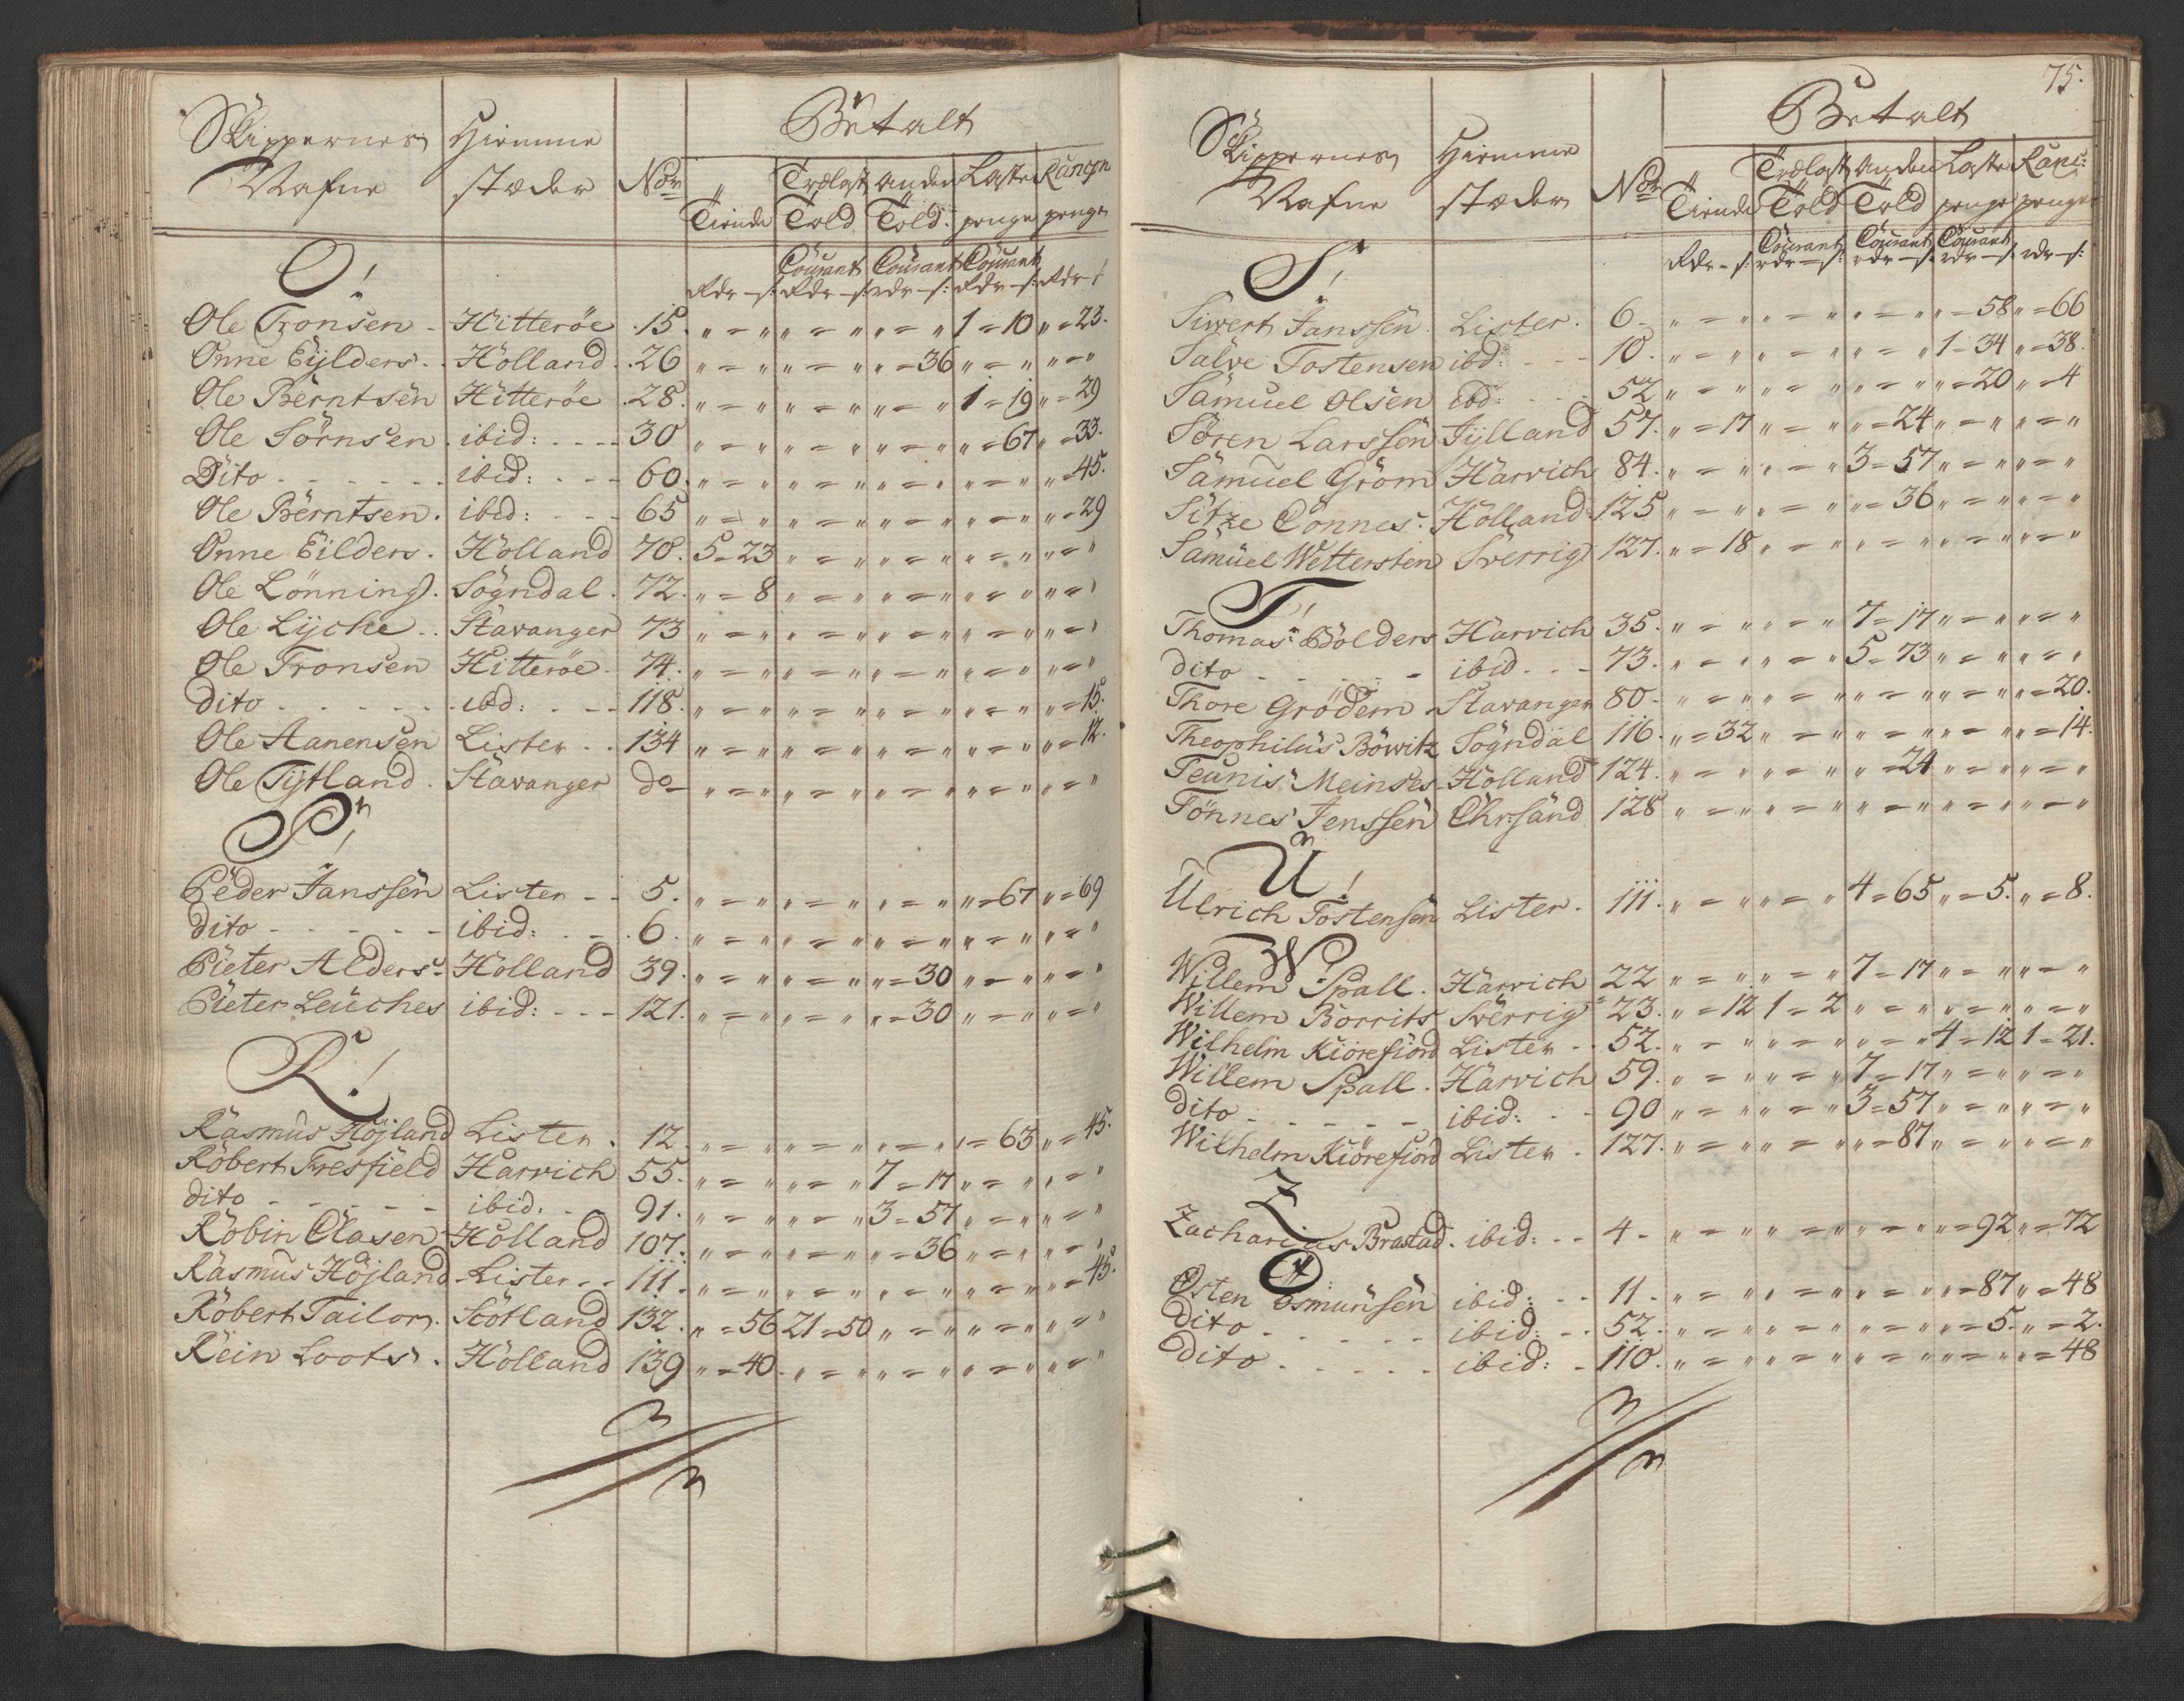 Skippernes Hiemme Betalt
Nafne stæder No Trælast Anden Laste Rancon
Tiende Told Told penge penge
Courant Courant Courant
Rdr - s: Rdr - s: rdr - s: Rdr - s: Rdr s
O!
Ole Tronsen - Hitterøe 15. " = " " = " " = " 1 = 10 " = 23.
Onne Eijlders. Holland. 26 " = " " = " " = 36 " = " " = "
Ole Berntsen Hitterøe 28. " = " " = " " = " 1 = 19 " = 29
Ole Sørnsen. ibid: - - - 30 " = " " = " " = " " = 67 " = 33.
Dito - - - - - ibid: - - - 60. " = " " = " " = " " = " " = 45.
Ole Berntsen. ibid: - - - 65 " = " " = " " = " " = " " = 29
Onne Eilders. Holland 70. 5 = 23 " = " " = " " = " " = "
Ole Lønning. Sogndal. 72. " = 8 " = " " = " " = " " = "
Ole Lyche.. Stavanger 73 " = " " = " " = " " = " " = "
Ole Tronsen Hitterøe. 74. " = " " = " " = " " = " " = "
dito - - - - - ibd: - - - 118. " = " " = " " = " " = " " = 15.
Ole Aanensen Lister - . 134 " = " " = " " = " " = " " = 12.
Ole Tÿtland. Stavanger do " = " " = " " = " " = " " = "
P!
Peder Janssen Lister - - 5. " = " " = " " = " " = 67 " = 69
dito - - - - - ibid: - - - 6. " = " " = " " = " " = " " = "
Pieter Alders. Holland 39. " = " " = " " = 30 " = " " = "
Pieter Leuches ibid: - - - 121. " = " " = " " = 30 " = " " = "
R!
Rasmus Höjland Lister. 12. " = " " = " " = " " = 63 " = 45.
Robert Fresfield Harvich 55. " = " " = " 7 = 17 " = " " = "
dito - - - - - ibid: - - 91. " = " " = " 3 = 57 " = " " = "
Robin Clasen Holland 107. " = " " = " " = 36 " = " " = "
Rasmus Höjland Lister - - 111. " = " " = " " = " " = " " = 45.
Robert Tailor. Scotland 132. " = 56 21 = 50 " = " " = " " = "
Rein Loots. Holland 139 " = 40. " = " " = " " = " " = "
75.
Skippernes Hiemme Betalt
Nafne stæder No Trælast Anden Laste Ranc:
Tiende Told Told penge penge
Courant Courant Courant
Rdr - s: rdr - s: rdr - s: rdr - s: rdr - s:
S!
Siwert Janssen. Lister. 6 - " = " " = " " = " " = 58 " = 66
Salve Tostensen ibd: - - - 10. " = " " = " " = " 1 = 34 " = 38.
Samuel Olsen ibd: - - - 52 " = " " = " " = " " = 20 " = 4
Søren Larssen Jylland 57. " = 17 " = " " = 24 " = " " = "
Samuel Grom Harvich 84. " = " " = " 3 = 57 " = " " = "
Sitze Connes. Holland 125 " = " " = " " = 36 " = " " = "
Samuel Wettersten Sverrig 127. " = 18 " = " " = " " = " " = "
T!
Thomas Bolders Harvich 35. " = " " = " 7 = 17 " = " " = "
dito - - - - - ibid - - - 73. " = " " = " 5 = 73 " = " " = "
Thore Grødem Stavanger 80 - " = " " = " " = " " = " " = 20.
Theophilus Bowitz Sogndal 116. " = 32 " = " " = " " = " " = 14.
Teunis Meinses Holland 124. " = " " = " " = 24 " = " " = "
Tønnes Jenssen Chr:sand 128 " = " " = " " = " " = " " = "
U!
Ulrich Tostensen Lister. 111. " = " " = " 4 = 65 " = 5. " = 8.
W!
Willem Spall. Harvich 22 " = " " = " 7 = 17 " = " " = "
Willem Borrits Sverrig 23. " = 12 1 = 2 " = " " = " " = "
Wilhelm Kiørefiord Lister - - 52. " = " " = " " = " 4 = 12 1 = 21.
Willem Spall. Harvich 59. " = " " = " 7 = 17 " = " " = "
dito - - - - - ibid: - - 90 " = " " = " 3 = 57 " = " " = "
Wilhelm Kiørefiord Lister. 127. " = " " = " " = 87 " = " " = "
Z
Zacharias Brastad. ibid: - - 4 - " = " " = " " = " " = 92 " = 72
Ø
Østen Osmunsen ibid: - - 11 - " = " " = " " = " " = 87 " = 48
Dito - - - - - ibid: - - 52. " = " " = " " = " " = 5. " = 2.
Dito - - - - - ibid: - 110. " = " " = " " = " " = " " = 48